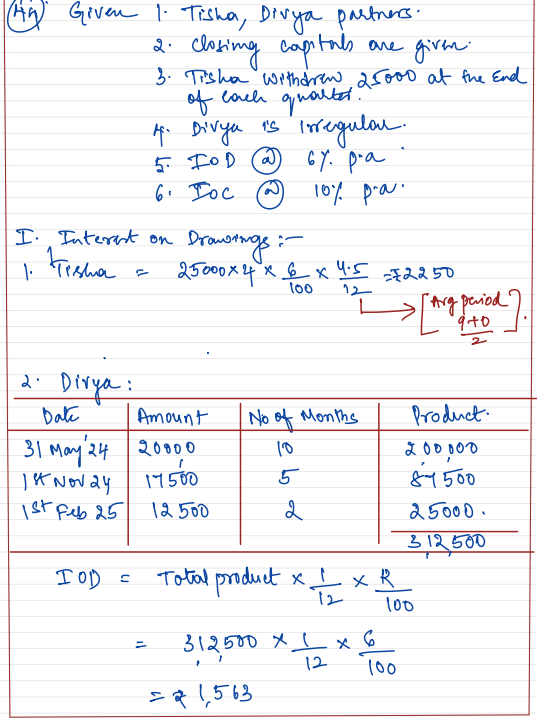 44) Given 1. Tisha, Divya partners.
2. closing capitals are given.
3. Tisha withdrew 25000 at the End
of each quarter.
4. Divya is irregular.
5. IOD @ 6% p.a
6. IOC @ 10% p.a.
I. Interest on Drawings :-
1. Tisha = 25000 × 4 × 6/100 × 4.5/12 = ₹2250
[Avg period 9+0/2].
2. Divya :
Date Amount No of Months Product.
31 May'24 20000 10 2,00,000
1st Nov 24 17500 5 87500
1st Feb 25 12500 2 25000.
3,12,500
IOD = Total product × 1/12 × R/100
= 3,12,500 × 1/12 × 6/100
= ₹ 1,563